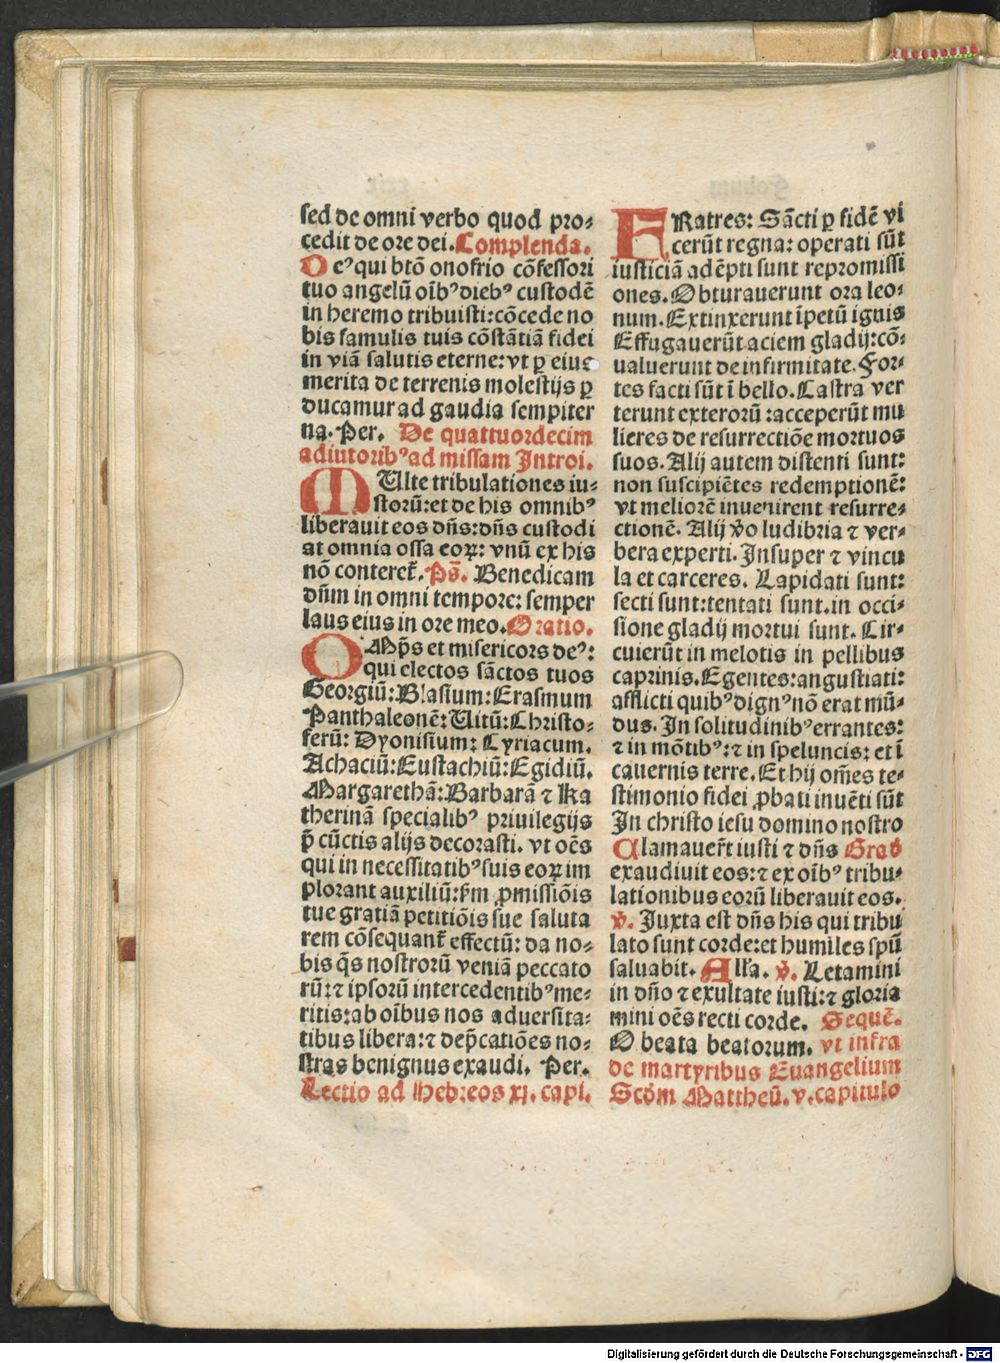 sed de omni verbo quod pro⸗
cedit de ore dei. Complenda.
Deꝰ qui btō onofrio cōfessori
tuo angelū oībꝰ diebꝰ custodē
in heremo tribuisti: cōcede no
bis famulis tuis cōstātiā fidei
in viā salutis eterne: vt ꝑ eius
merita de terrenis molestijs ꝑ
ducamur ad gaudia sempiter
na. Per. De quattuordecim
adiutoribꝰ ad missam Introi.
MUlte tribulationes iu⸗
storū: et de his omnibꝰ
liberauit eos dn̄s: dn̄s custodi
at omnia ossa eoꝝ: vnū ex his
nō conteret᷑. Ps̄. Benedicam
dn̄m in omni tempore: semper
laus eius in ore meo. Oratio.
OMp̄s et misericors deꝰ:
qui electos sāctos tuos
Georgiū: Blasium: Erasmum
Panthaleonē: Uitū: Christo⸗
ferū: Dyonisium: Cyriacum.
Achaciū: Eustachiū: Egidiū.
Margarethā: Barbarā ⁊ Ka
therinā specialibꝰ priuilegijs
p̄ cūctis alijs decorasti. vt oēs
qui in necessitatibꝰ suis eoꝝ im
plorant auxiliū: ẜm ꝓmissiōis
tue gratiā petitiōis sue saluta
rem cōsequant᷑ effectū: da no⸗
bis q̄s nostrorū veniā peccato
rū: ⁊ ipsorū intercedentibꝰ me⸗
ritis: ab oībus nos aduersita⸗
tibus libera: ⁊ dep̄catiōes no⸗
stras benignus exaudi. Per.
Lectio ad Hebreos xj. capi.
FRatres: Sācti ꝑ fidē vi
cerūt regna: operati sūt
iusticiā adēpti sunt repromissi
ones. Obturauerunt ora leo⸗
num. Extinxerunt īpetū ignis
Effugauerūt aciem gladij: cō⸗
ualuerunt de infirmitate. For⸗
tes facti sūt ī bello. Castra ver
terunt exterorū: acceperūt mu
lieres de resurrectiōe mortuos
suos. Alij autem distenti sunt:
non suscipiētes redemptionē:
vt meliorē inuenirent resurre⸗
ctionē. Alij v̄o ludibria ⁊ ver⸗
bera experti. Insuper ⁊ vincu
la et carceres. Lapidati sunt:
secti sunt: tentati sunt. in occi⸗
sione gladij mortui sunt. Cir⸗
cuierūt in melotis in pellibus
caprinis. Egentes: angustiati:
afflicti quibꝰ dignꝰ nō erat mū⸗
dus. In solitudinibꝰ errantes:
⁊ in mōtibꝰ: ⁊ in speluncis: et ī
cauernis terre. Et hij om̄es te⸗
stimonio fidei ꝓbati inuēti sūt
In christo iesu domino nostro
Clamauer̄t iusti ⁊ dn̄s Grad
exaudiuit eos: ⁊ ex oībꝰ tribu⸗
lationibus eorū liberauit eos.
℣. Juxta est dn̄s his qui tribu
lato sunt corde: et humiles spū
saluabit. Alľa. ℣. Letamini
in dn̄o ⁊ exultate iusti: ⁊ gloria
mini oēs recti corde. Sequē.
O beata beatorum. vt infra
de martyribus Euangelium
Scd̄m Mattheū. v. capitulo
Digitalisierung gefördert durch die Deutsche Forschungsgemeinschaft - DFG